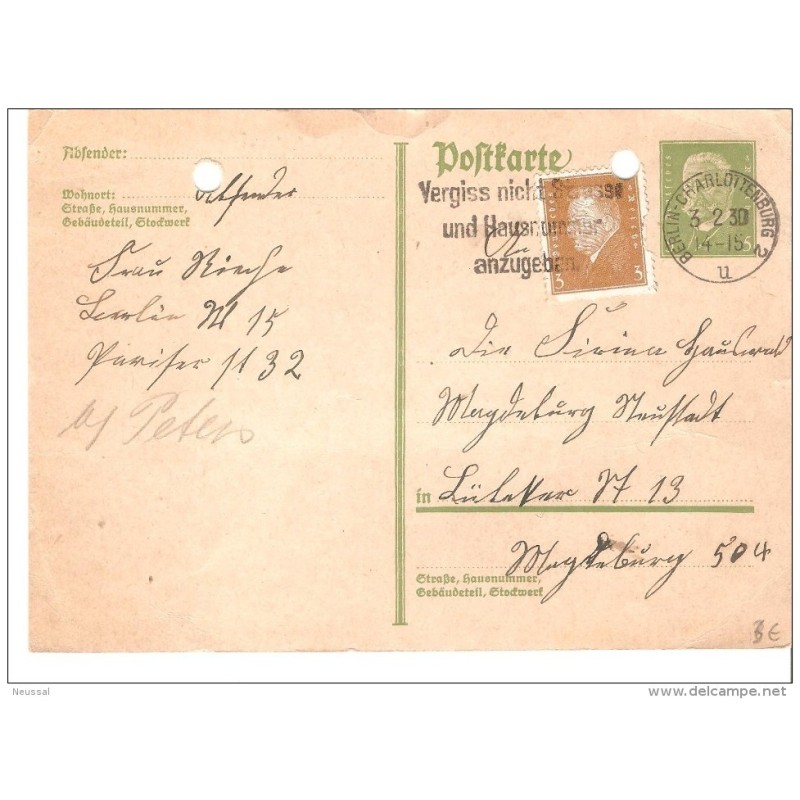 Absender:
Absender
Wohnort:
Straße, Hausnummer,
Gebäudeteil, Stockwerk
Frau
Berlin W 15
Pariser St 32
Peters
Postkarte
Vergiss nicht Strasse
und Hausnummer
anzugeben.
An
3 3
BERLIN-CHARLOTTENBURG 2
3 2 30
14-15
u
Die Firma Hauswald
Magdeburg Neustadt
in Lübecker St 13
Magdeburg 504
Straße, Hausnummer,
Gebäudeteil, Stockwerk
3€
Neussal
delcampe.net